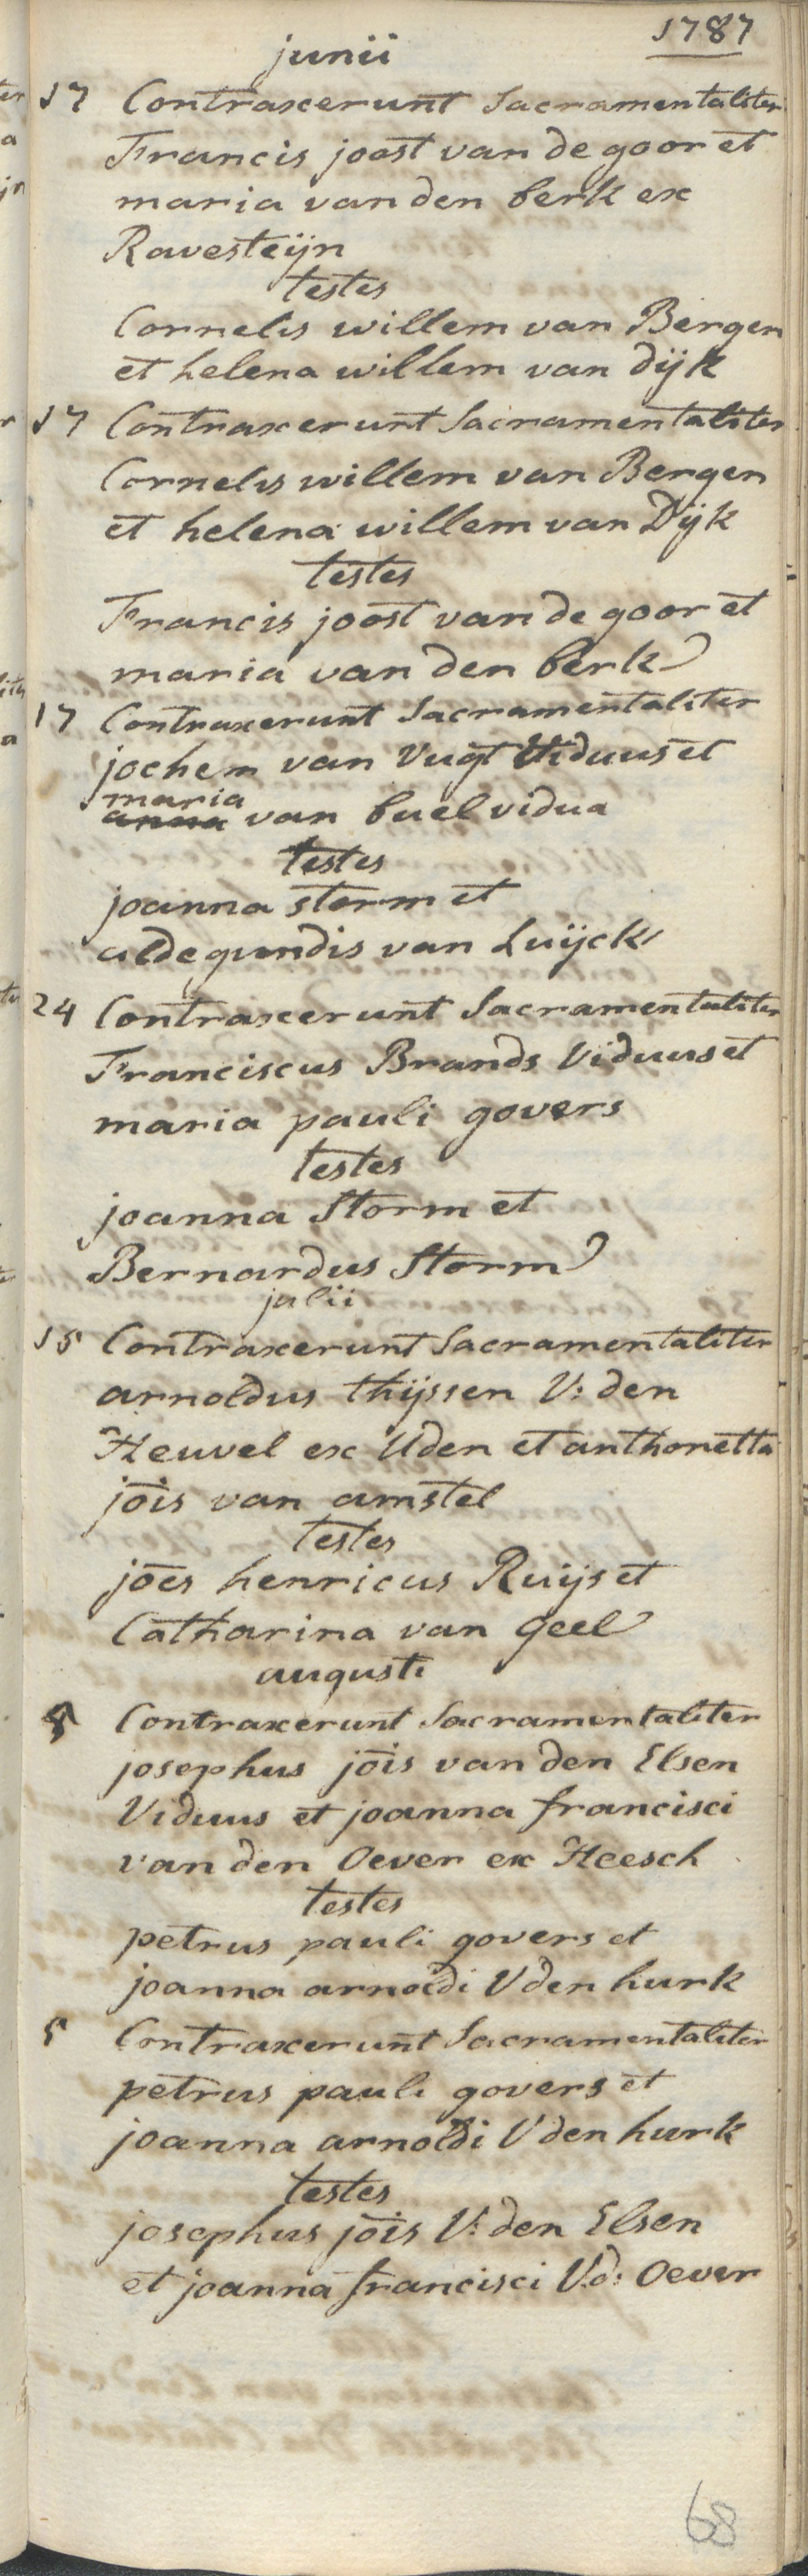 1787
junii
17 Contraxerunt Sacramentaliter
Francis joost van de goor et
maria van den berk ex
Ravesteijn
testes
Cornelis willem van Bergen
et helena willem van dijk
17 Contraxerunt Sacramentaliter
Cornelis willem van Bergen
et helena willem van Dijk
testes
Francis joost van de goor et
maria van den berk
17 Contraxerunt Sacramentaliter
jochem van Vugt Viduus et
maria
anna van buel vidua
testes
joanna storm et
aldegundis van Luijck
24 Contraxerunt Sacramentaliter
Franciscus Brands Viduus et
maria pauli govers
testes
joanna Storm et
Bernardus Storm
julii
15 Contraxerunt Sacramentaliter
arnoldus thijssen V: den
Heuvel ex Uden et anthonetta
jōis van amstel
testes
jōes henricus Ruijs et
Catharina van Geel
augusti
5 Contraxerunt Sacramentaliter
josephus jōis van den Elsen
Viduus et joanna francisci
van den Oever ex Heesch
testes
petrus pauli govers et
joanna arnoldi V den hurk
5 Contraxerunt Sacramentaliter
petrus pauli govers et
joanna arnoldi V den hurk
testes
josephus jōis V: den Elsen
et joanna francisci V:d: Oever
68